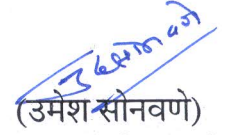 उमेश सोनवणे
(उमेश सोनवणे)